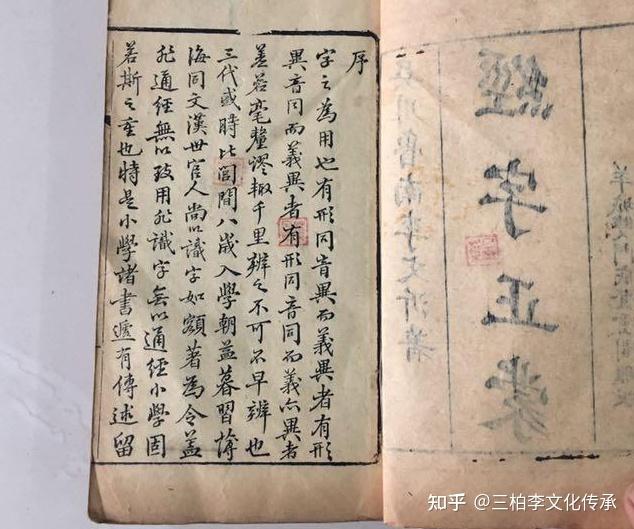 羊城雙門底
經字正蒙
吳川魯南李文沂著
序
字之為用也有形同音異而義異者有形
異音同而義異者有形同音同而義亦異者
差若毫釐謬輙千里辨之不可不早辨也
三代盛時比閭間八歲入學朝益暮習薄
海同文漢世官人尚以識字如額著為令蓋
非通經無以致用非識字無以通經小學固
若斯之重也特是小學諸書遞有傳述留
知乎 @三柏李文化传承